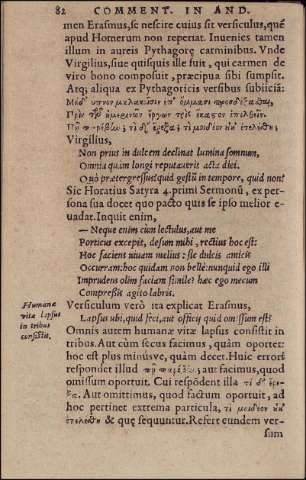 82 COMMENT. IN AND.
men Erasmus, se nescire cuius sit versiculus, quẽ
apud Homerum non reperiat. Inuenies tamen
illum in aureis Pythagorę carminibus. Vnde
Virgilius, siue quisquis ille fuit, qui carmen de
viro bono composuit, præcipua sibi sumpsit.
Atq; aliqua ex Pythagoricis versibus subiiciã:
Μηδ' ὕπνον μαλακοῖσιν ἐπ' ὄμμασι προσδέξασθαι,
Πρὶν τῶν ἡμερινῶν ἔργων τρὶς ἕκαστον ἐπελθεῖν.
Πῇ παρέβην; τί δ' ἔρεξα; τί μοι δέον οὐκ ἐτελέσθη;
Virgilius,
Non prius in dulcem declinat lumina somnum,
Omnia quàm longi reputauerit acta diei.
Quò prætergressus? quid gestũ in tempore, quid non?
Sic Horatius Satyra 4. primi Sermonũ, ex per-
sona sua docet quo pacto quis se ipso melior e-
uadat. Inquit enim,
— Neque enim cùm lectulus, aut me
Porticus excepit, desum mihi, rectius hoc est:
Hoc faciens viuam melius: sic dulcis amicis
Occurram: hoc quidam non bellè: nunquid ego illi
Imprudens olim faciam simile? hæc ego mecum
Compreßis agito labris.
Humanæ vita lapsus in tribus consistit.
Versiculum verò ita explicat Erasmus,
Lapsus ubi, quid feci, aut officij quid omissum est?
Omnis autem humanæ vitæ lapsus consistit in
tribus. Aut cùm secus facimus, quàm oportet:
hoc est plus minúsve, quàm decet. Huic errori
respondet illud πῇ παρέβην; aut facimus, quod
omissum oportuit. Cui respõdent illa τί δ' ἔρε-
ξα. Aut omittimus, quod factum oportuit, ad
hoc pertinet extrema particula, τί μοι δέον οὐκ
ἐτελέσθη & quę sequuntur. Refert eundem ver-
sum